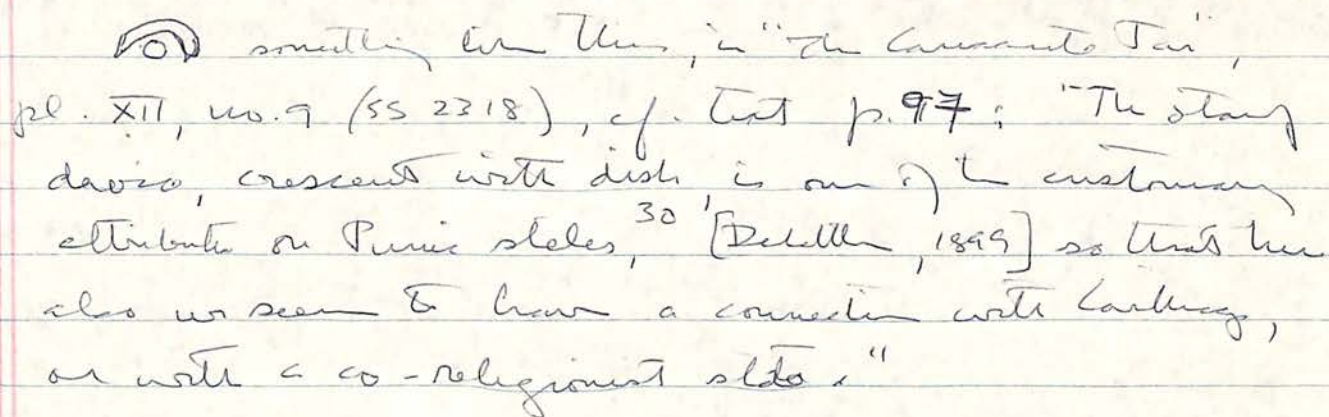 something like this, in "The Coroneos Jar",
pl. XII, no. 9 (SS 2318), cf. text p. 97: "The stamp
device, crescent with disk, is one of the customary
attributes on Punic steles,³⁰ [Delattre, 1899] so that here
also we seem to have a connection with Carthage,
or with a co-religionist state."